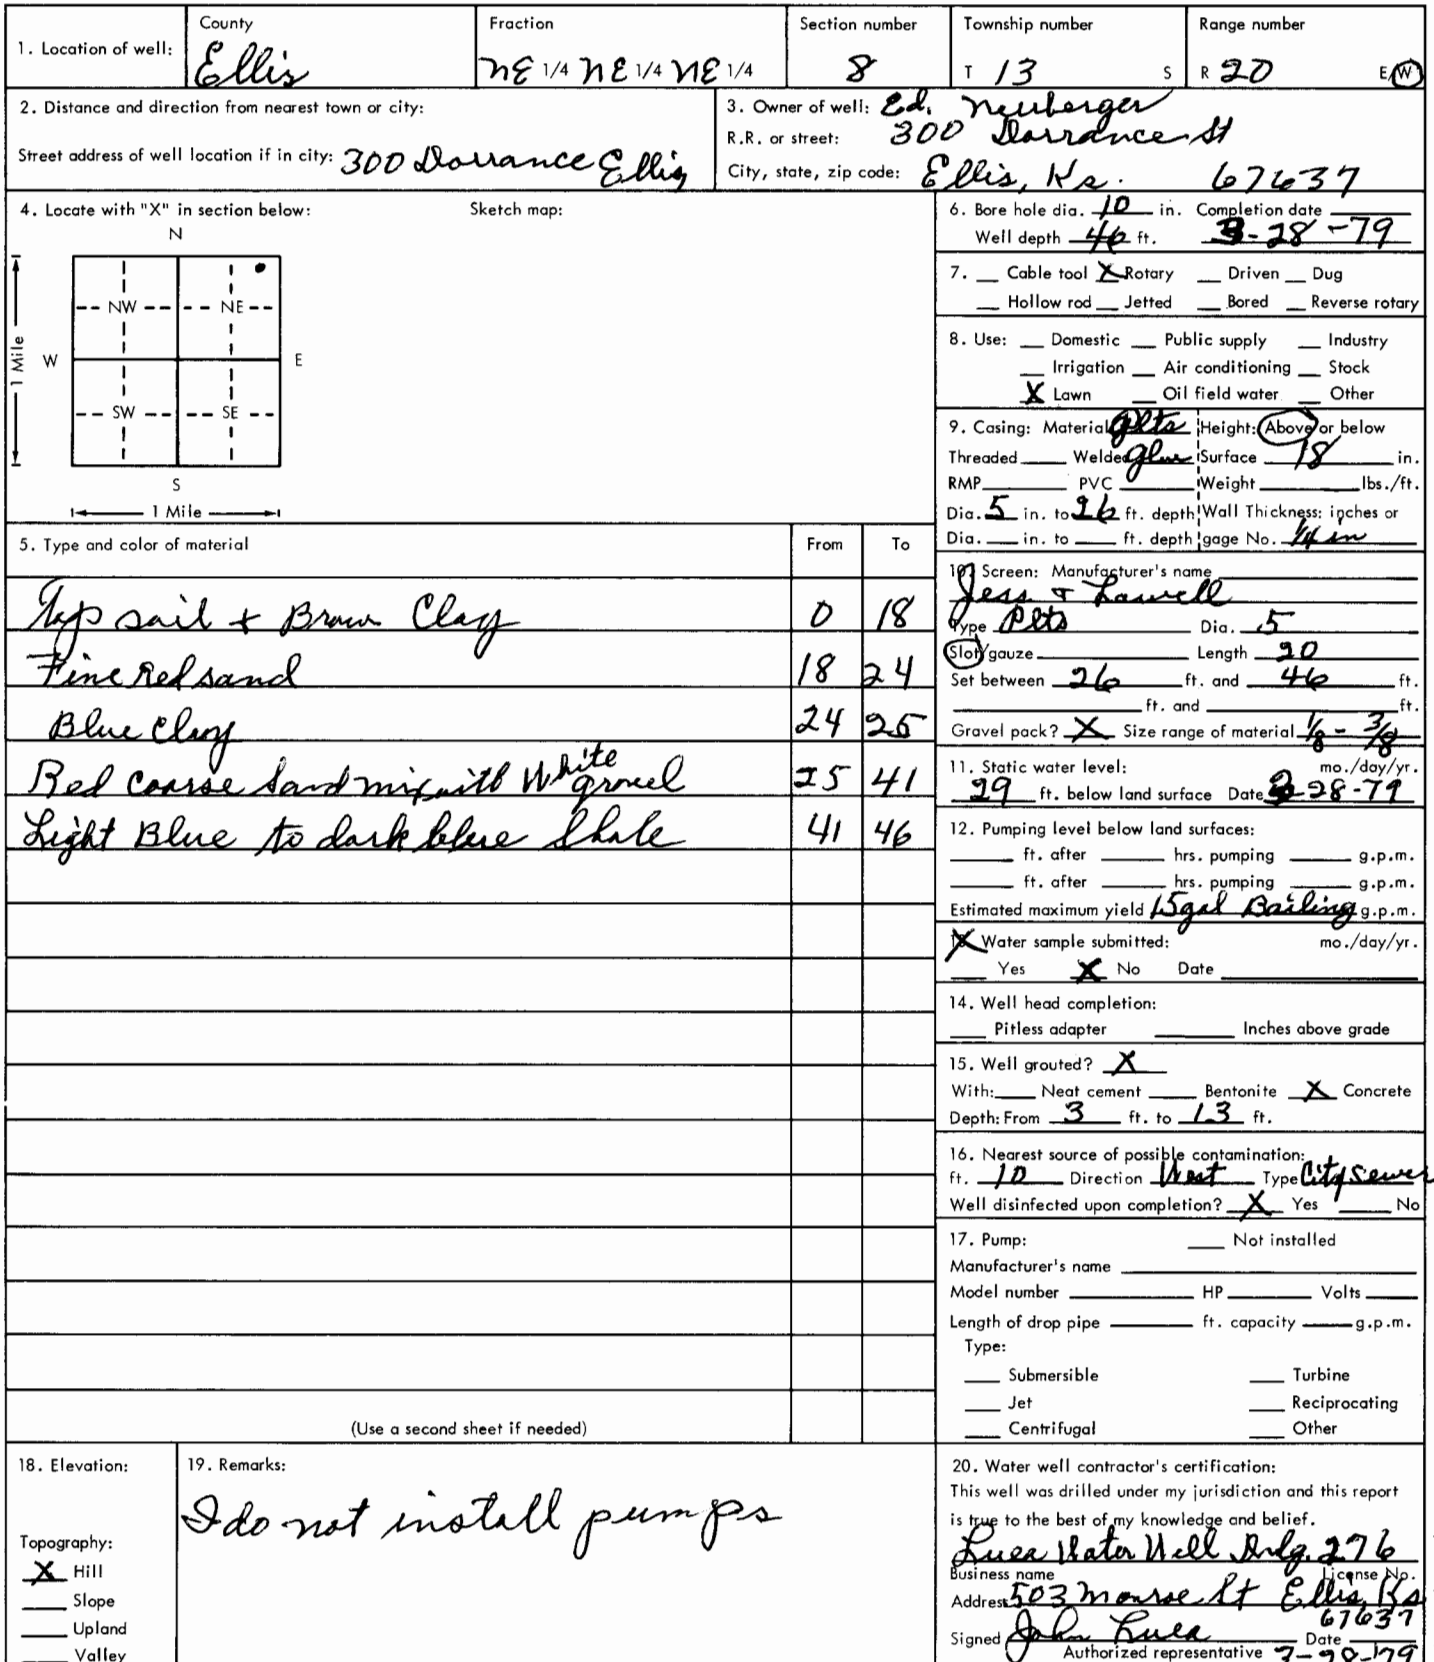 1. Location of well: County Fraction Section number Township number Range number
Ellis NE 1/4 NE 1/4 NE 1/4 8 T 13 S R 20 E/W
2. Distance and direction from nearest town or city:
Street address of well location if in city: 300 Dorrance Ellis
3. Owner of well: Ed. Neuberger
R.R. or street: 300 Dorrance St
City, state, zip code: Ellis, Ks. 67637
4. Locate with "X" in section below: Sketch map:
N
NW NE
W E
1 Mile
SW SE
S
1 Mile
5. Type and color of material From To
Top soil + Brown Clay 0 18
Fine Red sand 18 24
Blue Clay 24 25
Red coarse Sand mix with White gravel 25 41
Light Blue to dark blue Shale 41 46
(Use a second sheet if needed)
6. Bore hole dia. 10 in. Completion date
Well depth 46 ft. 3-28-79
7. Cable tool X Rotary Driven Dug
Hollow rod Jetted Bored Reverse rotary
8. Use: Domestic Public supply Industry
Irrigation Air conditioning Stock
X Lawn Oil field water Other
9. Casing: Material Plts Height: Above or below
Threaded Welded Glue Surface 18 in.
RMP PVC Weight lbs./ft.
Dia. 5 in. to 26 ft. depth Wall Thickness: inches or
Dia. in. to ft. depth gage No. 1/4 in
10. Screen: Manufacturer's name
Jess + Lowell
Type Plts Dia. 5
Slot/gauze Length 20
Set between 26 ft. and 46 ft.
ft. and ft.
Gravel pack? X Size range of material 1/8 - 3/8
11. Static water level: mo./day/yr.
29 ft. below land surface Date 3-28-79
12. Pumping level below land surfaces:
ft. after hrs. pumping g.p.m.
ft. after hrs. pumping g.p.m.
Estimated maximum yield 15gal Bailing g.p.m.
X Water sample submitted: mo./day/yr.
Yes X No Date
14. Well head completion:
Pitless adapter Inches above grade
15. Well grouted? X
With: Neat cement Bentonite X Concrete
Depth: From 3 ft. to 13 ft.
16. Nearest source of possible contamination:
ft. 10 Direction West Type City Sewer
Well disinfected upon completion? X Yes No
17. Pump: Not installed
Manufacturer's name
Model number HP Volts
Length of drop pipe ft. capacity g.p.m.
Type:
Submersible Turbine
Jet Reciprocating
Centrifugal Other
18. Elevation:
Topography:
X Hill
Slope
Upland
Valley
19. Remarks:
I do not install pumps
20. Water well contractor's certification:
This well was drilled under my jurisdiction and this report
is true to the best of my knowledge and belief.
Luea Water Well Drlg. 276
Business name License No.
Address 503 Monroe St Ellis, Ks
67637
Signed John Luea Date
Authorized representative 3-28-79